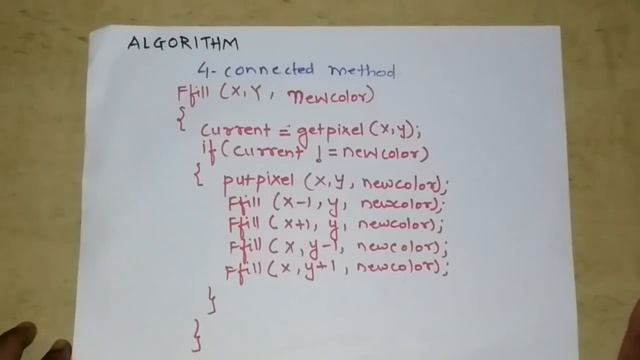 ALGORITHM
4-connected method
Ffill (X,Y, Newcolor)
{
current = getpixel (x,y);
if (current != newcolor)
{ putpixel (x,y, newcolor);
Ffill (x-1, y, newcolor);
Ffill (x+1, y, newcolor);
Ffill (x, y-1, newcolor);
Ffill (x, y+1, newcolor);
}
}